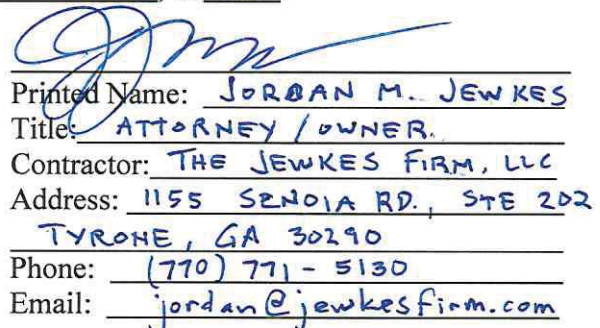 Printed Name: JORDAN M. JEWKES
Title: ATTORNEY / OWNER.
Contractor: THE JEWKES FIRM, LLC
Address: 1155 SENOIA RD., STE 202
TYRONE, GA 30290
Phone: (770) 771-5130
Email: jordan@jewkesfirm.com